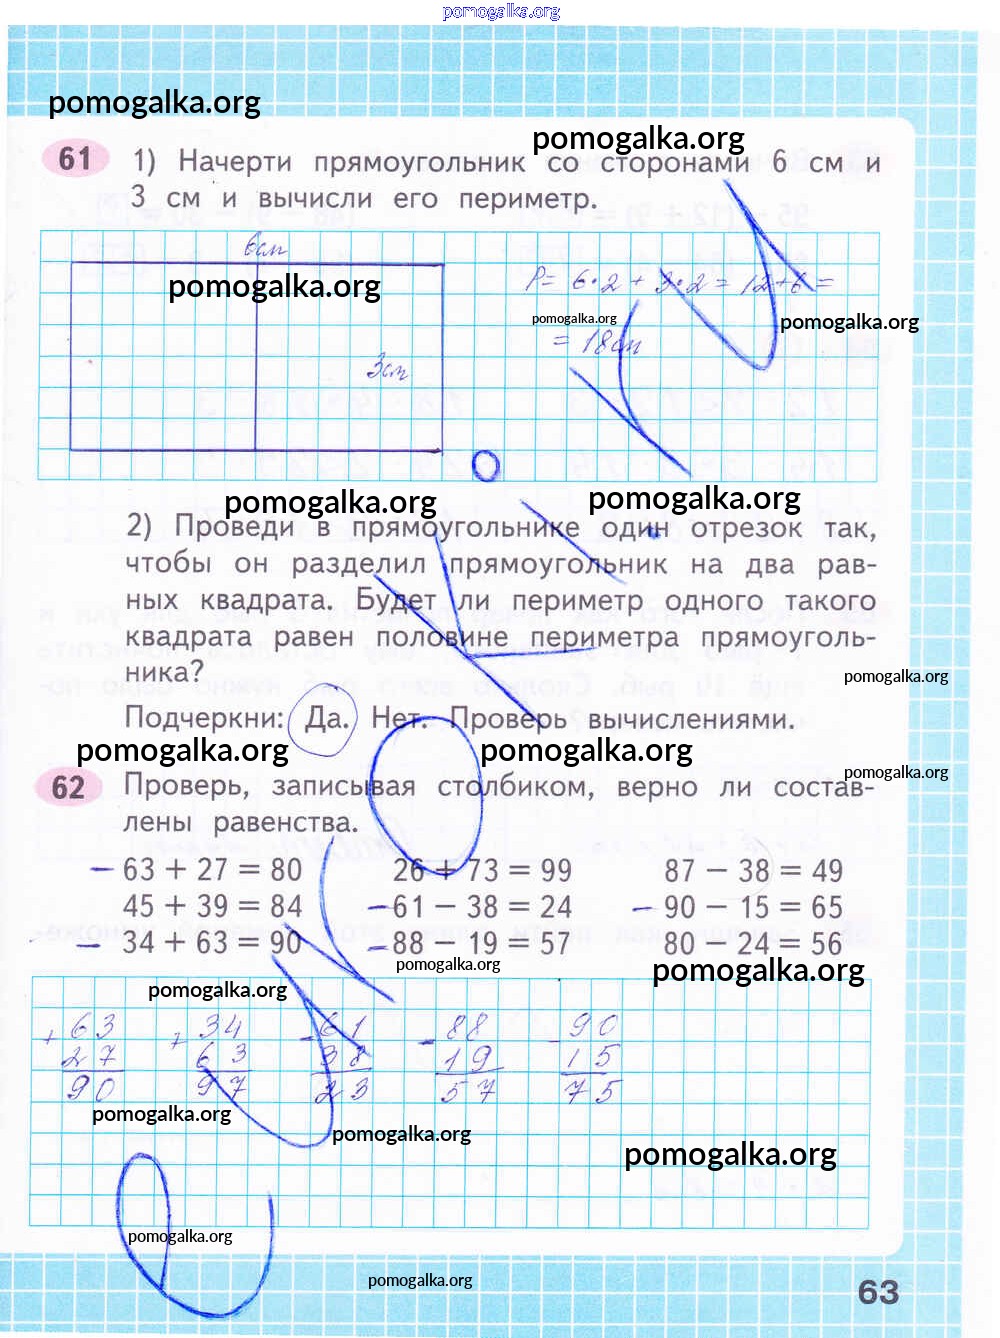 pomogalka.org
pomogalka.org
pomogalka.org
61 1) Начерти прямоугольник со сторонами 6 см и
3 см и вычисли его периметр.
6см
pomogalka.org
P= 6·2 + 3·2 = 12+6 =
pomogalka.org
pomogalka.org
= 18см
3см
pomogalka.org
pomogalka.org
2) Проведи в прямоугольнике один отрезок так,
чтобы он разделил прямоугольник на два рав-
ных квадрата. Будет ли периметр одного такого
квадрата равен половине периметра прямоуголь-
ника?
pomogalka.org
Подчеркни: Да. Нет. Проверь вычислениями.
pomogalka.org
pomogalka.org
pomogalka.org
62 Проверь, записывая столбиком, верно ли состав-
лены равенства.
– 63 + 27 = 80 26 + 73 = 99 87 – 38 = 49
45 + 39 = 84 – 61 – 38 = 24 – 90 – 15 = 65
– 34 + 63 = 90 – 88 – 19 = 57 80 – 24 = 56
pomogalka.org
pomogalka.org
pomogalka.org
+ 63 + 34 – 61 – 88 – 90
27 63 38 19 15
90 97 23 57 75
pomogalka.org
pomogalka.org
pomogalka.org
pomogalka.org
pomogalka.org
63